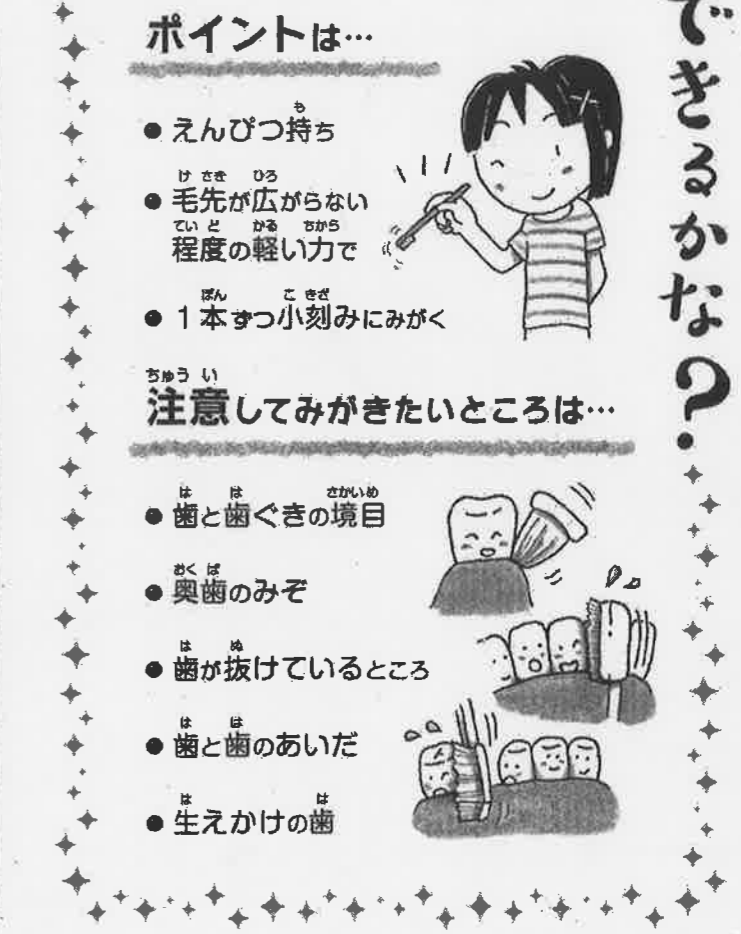 できるかな？
ポイントは…
●えんぴつ持ち
●毛先が広がらない
程度の軽い力で
●1本ずつ小刻みにみがく
注意してみがきたいところは…
●歯と歯ぐきの境目
●奥歯のみぞ
●歯が抜けているところ
●歯と歯のあいだ
●生えかけの歯